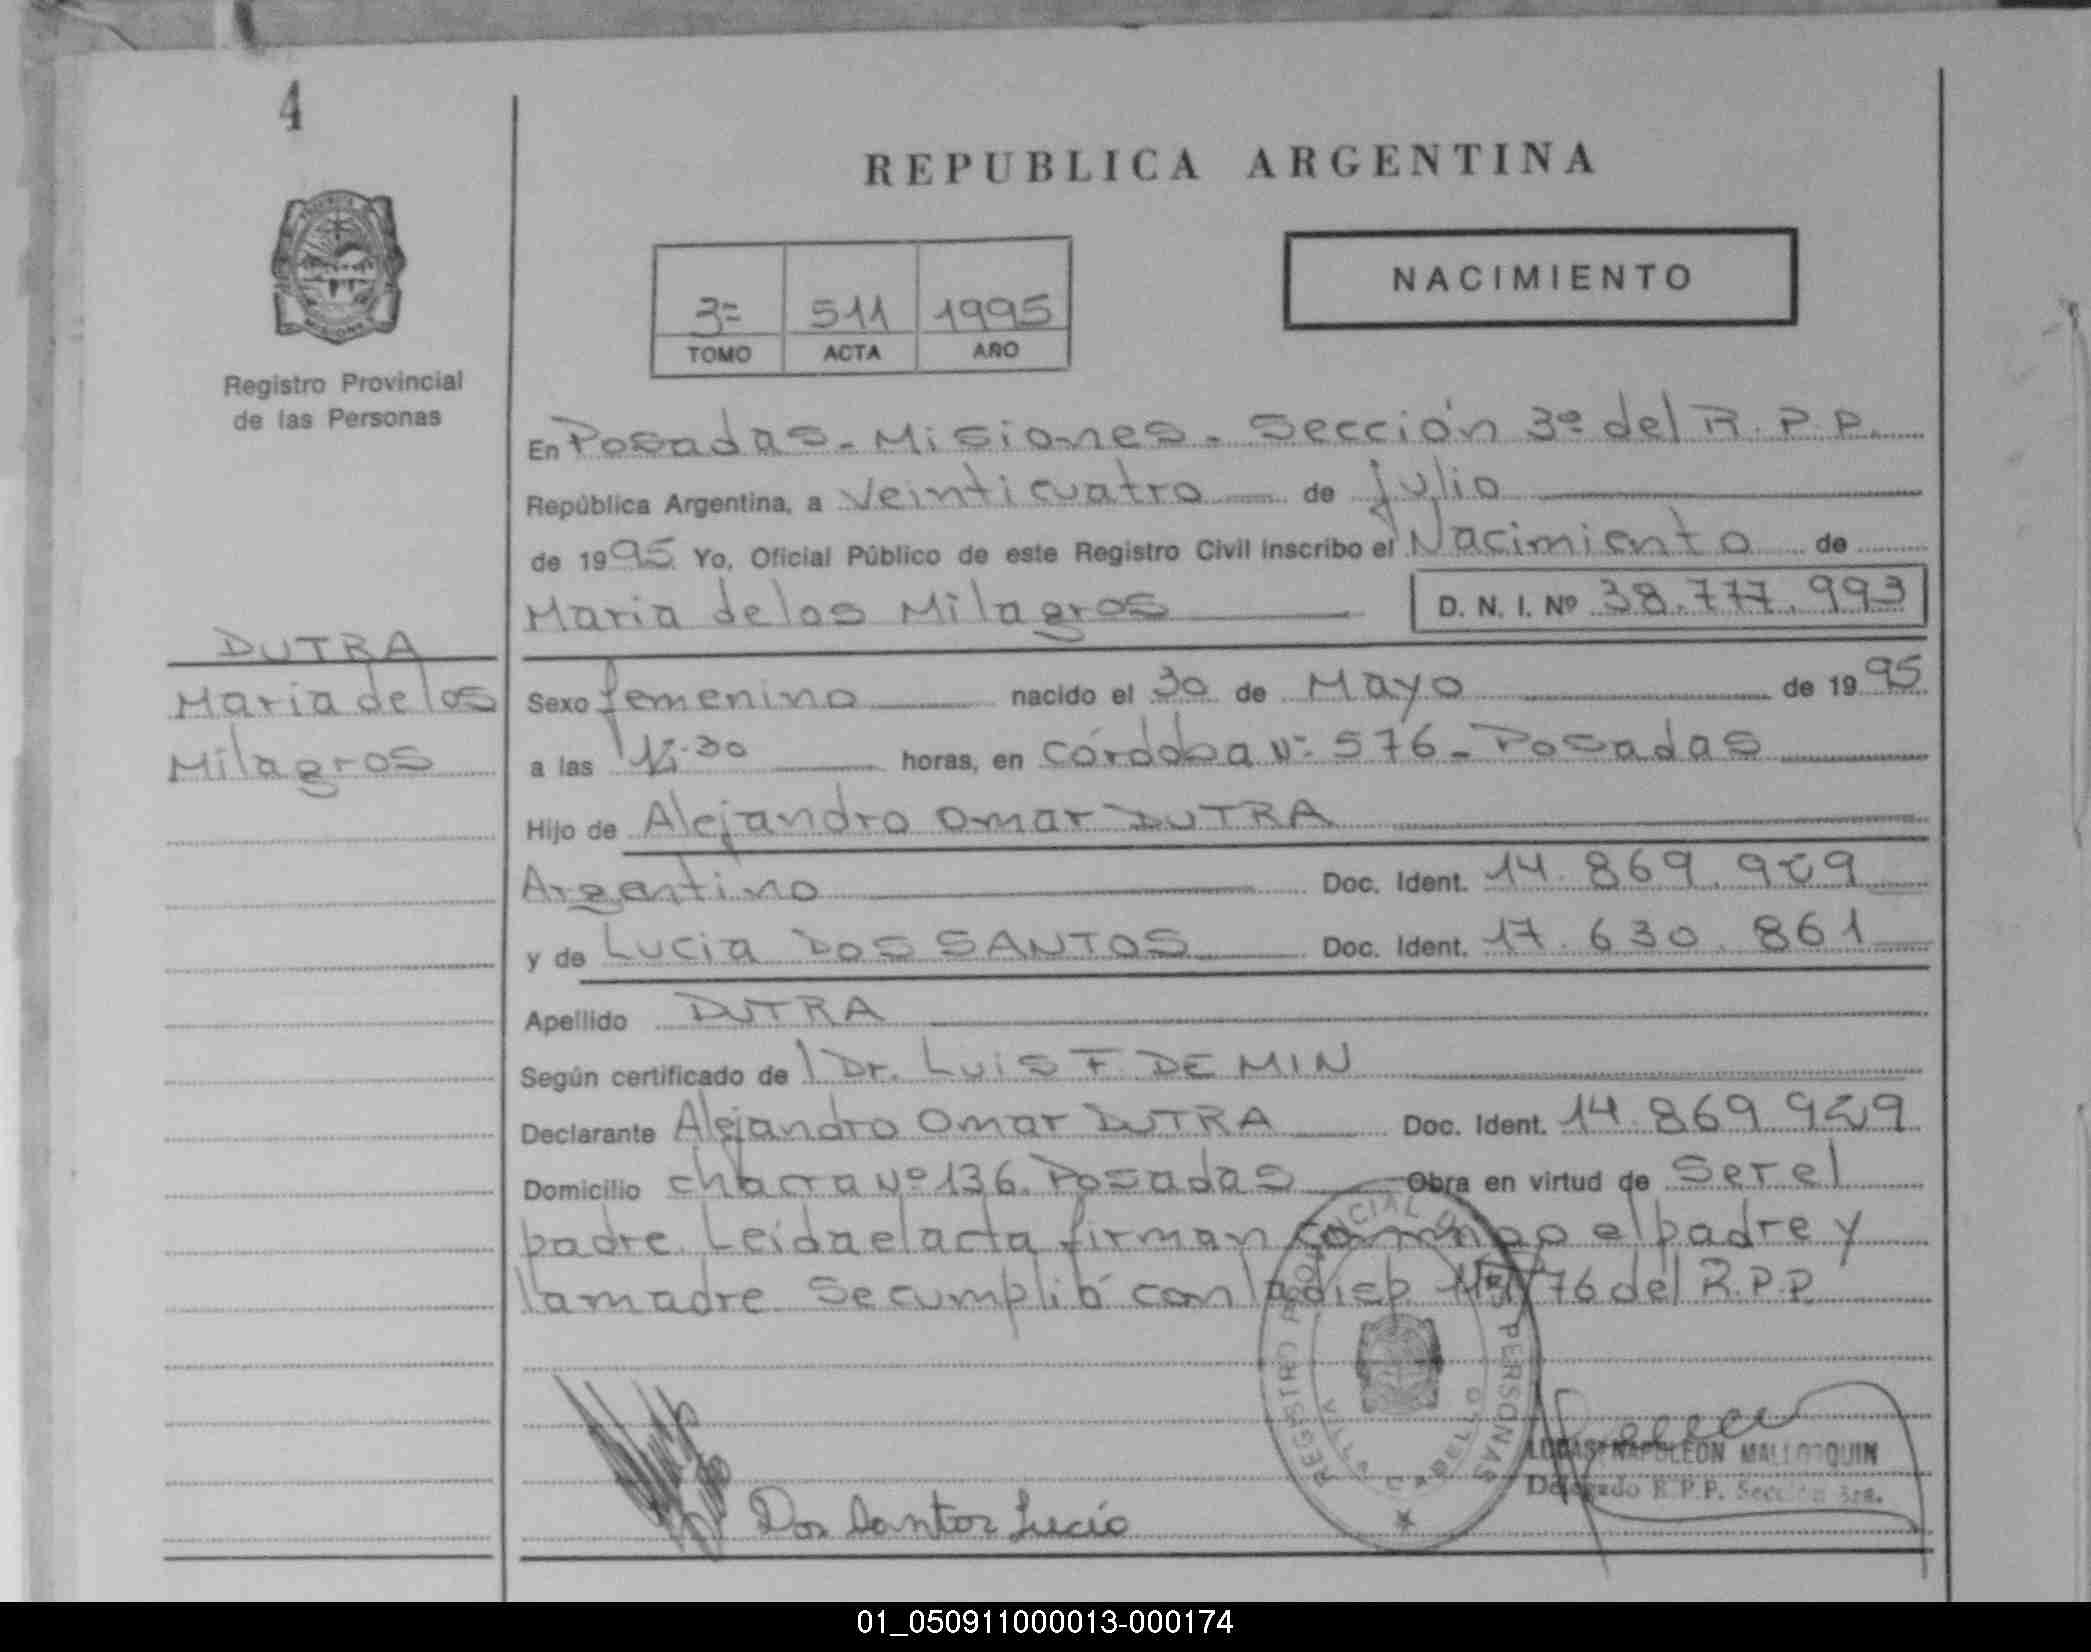 4
REPUBLICA ARGENTINA
NACIMIENTO
3= 511 1995
TOMO ACTA AÑO
Registro Provincial
de las Personas
En Posadas - Misiones - Sección 3º del R.P.P.
República Argentina, a Veinticuatro de Julio
de 1995 Yo, Oficial Público de este Registro Civil inscribo el Nacimiento de
Maria de los Milagros D. N. I. Nº 38.777.993
DUTRA
Maria de los
Milagros
Sexo femenino nacido el 30 de Mayo de 1995
a las horas, en Córdoba Nº 576 - Posadas
Hijo de Alejandro Omar DUTRA
Argentino Doc. Ident. 14.869.929
y de Lucia DOS SANTOS Doc. Ident. 17.630.861
Apellido DUTRA
Según certificado de Dr. Luis F. DE MIN
Declarante Alejandro Omar DUTRA Doc. Ident. 14.869.929
Domicilio chacra Nº 136. Posadas Obra en virtud de Ser el
padre. Leida el acta firman conmigo el padre y
la madre Se cumplió con la disp. /76 del R.P.P.
REGISTRO PROVINCIAL DE LAS PERSONAS
VILLA CABELLO
LUCAS NAPOLEON MALLORQUIN
Delegado R.P.P. Sección 3ra.
Dos Santos Lucia
01_050911000013-000174